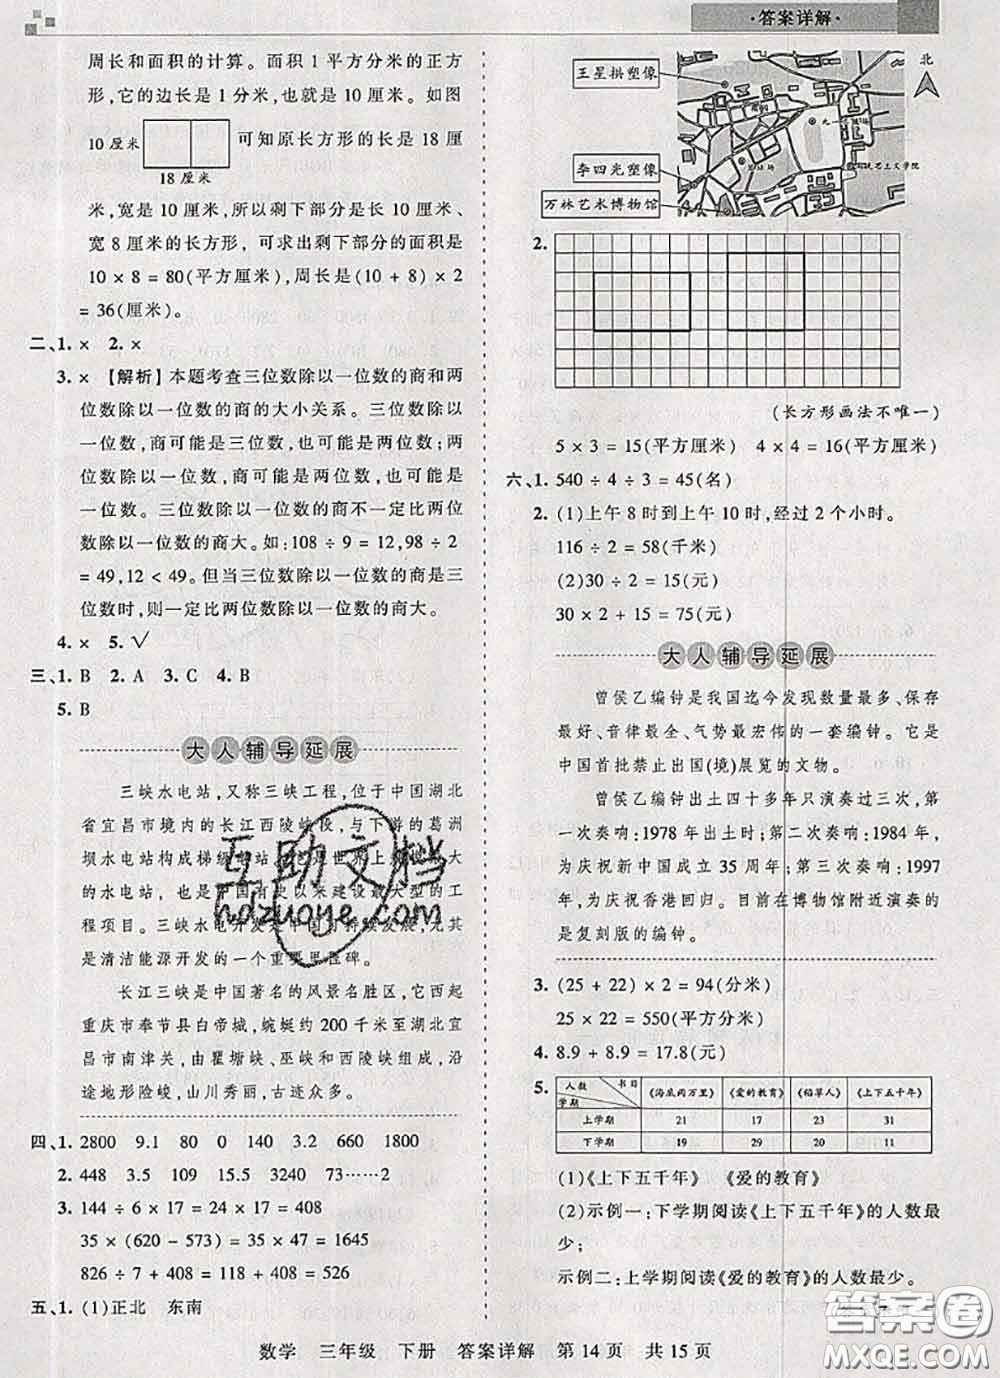 ·答案详解·
周长和面积的计算。面积 1 平方分米的正方
形,它的边长是 1 分米,也就是 10 厘米。如图
10 厘米
18 厘米
可知原长方形的长是 18 厘
米,宽是 10 厘米,所以剩下部分是长 10 厘米、
宽 8 厘米的长方形,可求出剩下部分的面积是
10 × 8 = 80(平方厘米),周长是(10 + 8) × 2
= 36(厘米)。
二、1. × 2. ×
3. × 【解析】本题考查三位数除以一位数的商和两
位数除以一位数的商的大小关系。三位数除以
一位数,商可能是三位数,也可能是两位数;两
位数除以一位数,商可能是两位数,也可能是一
位数。三位数除以一位数的商不一定比两位数
除以一位数的商大。如:108 ÷ 9 = 12,98 ÷ 2
= 49,12 < 49。但当三位数除以一位数的商是三
位数时,则一定比两位数除以一位数的商大。
4. × 5. √
三、1. B 2. A 3. C 4. B
5. B
大人辅导延展
三峡水电站,又称三峡工程,位于中国湖北
省宜昌市境内的长江西陵峡段,与下游的葛洲
坝水电站构成梯级电站。它是世界上规模最大
的水电站,也是中国有史以来建设最大型的工
程项目。三峡水电开发是中国可持续发展,尤其
是清洁能源开发的一个重要里程碑。
长江三峡是中国著名的风景名胜区,它西起
重庆市奉节县白帝城,蜿蜒约 200 千米至湖北宜
昌市南津关,由瞿塘峡、巫峡和西陵峡组成,沿
途地形险峻,山川秀丽,古迹众多。
四、1. 2800 9.1 80 0 140 3.2 660 1800
2. 448 3.5 109 15.5 3240 73……2
3. 144 ÷ 6 × 17 = 24 × 17 = 408
35 × (620 - 573) = 35 × 47 = 1645
826 ÷ 7 + 408 = 118 + 408 = 526
五、1. (1)正北 东南
北
王星拱塑像
李四光塑像
万林艺术博物馆
2.
(长方形画法不唯一)
5 × 3 = 15(平方厘米) 4 × 4 = 16(平方厘米)
六、1. 540 ÷ 4 ÷ 3 = 45(名)
2. (1)上午 8 时到上午 10 时,经过 2 个小时。
116 ÷ 2 = 58(千米)
(2)30 ÷ 2 = 15(元)
30 × 2 + 15 = 75(元)
大人辅导延展
曾侯乙编钟是我国迄今发现数量最多、保存
最好、音律最全、气势最宏伟的一套编钟。它是
中国首批禁止出国(境)展览的文物。
曾侯乙编钟出土四十多年只演奏过三次,第
一次奏响:1978 年出土时;第二次奏响:1984 年,
为庆祝新中国成立 35 周年;第三次奏响:1997
年,为庆祝香港回归。目前在博物馆附近演奏的
是复刻版的编钟。
3. (25 + 22) × 2 = 94(分米)
25 × 22 = 550(平方分米)
4. 8.9 + 8.9 = 17.8(元)
5. 人数 书目 学期 《海底两万里》 《爱的教育》 《稻草人》 《上下五千年》
上学期 21 17 23 31
下学期 19 29 20 11
(1)《上下五千年》 《爱的教育》
(2)示例一:下学期阅读《上下五千年》的人数最
少;
示例二:上学期阅读《爱的教育》的人数最少。
数学 三年级 下册 答案详解 第 14 页 共 15 页
互助文档
hdzuoye.com
答案圈
MXQE.COM